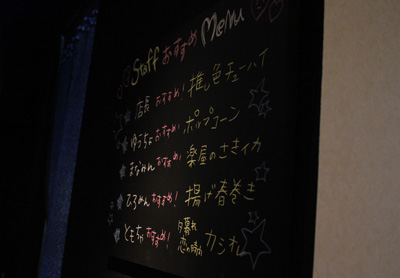 Staff おすすめ Menu
店長 おすすめ! 推し色チューハイ
ゆうちょ おすすめ! ポップコーン
まなみん おすすめ! 楽屋のさきイカ
ひろめん おすすめ! 揚げ春巻き
ともちゃ おすすめ! 夕暮れ 恋の時間 カシれ